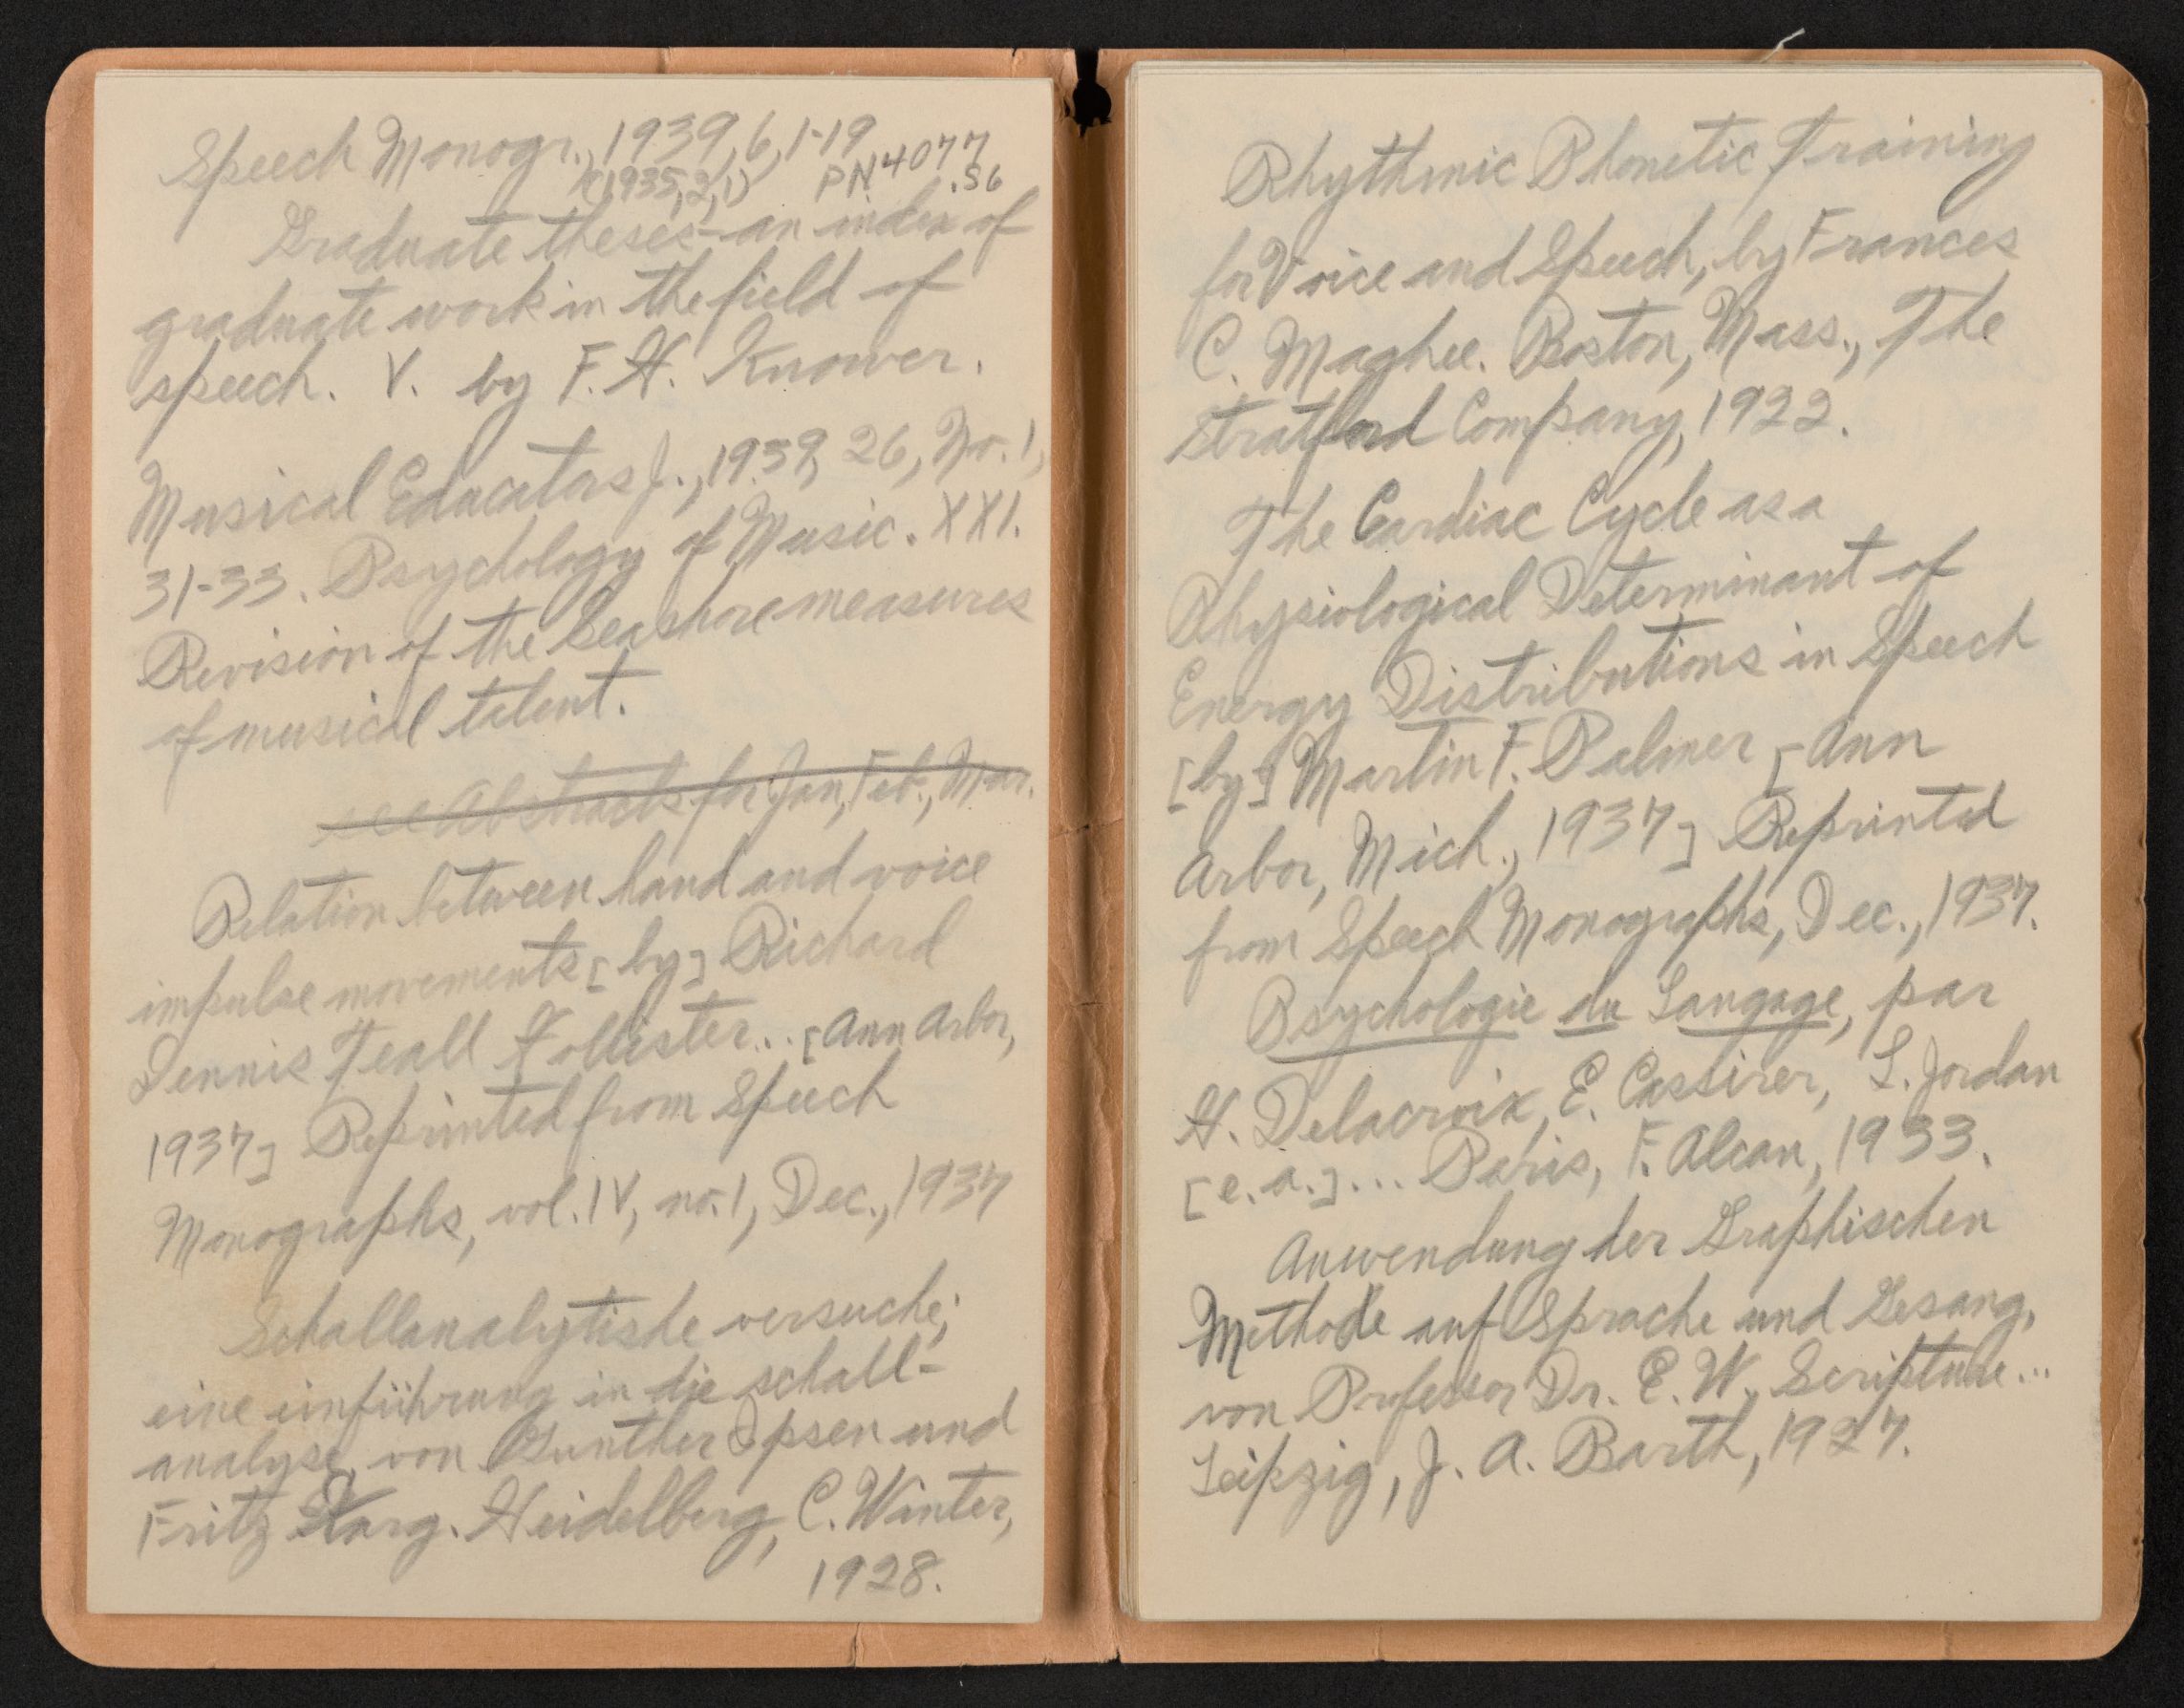 Speech Monogr., 1939, 6, 1-19
(1935, 2, 1) PN4077
.S6
Graduate theses - an index of
graduate work in the field of
speech. V. by F. H. Knower.
Musical Educators J., 1939, 26, No. 1,
31-33. Psychology of Music. XXI.
Revision of the Seashore measures
of musical talent.
see Abstracts for Jan, Feb., Mar.
Relation between hand and voice
impulse movements [by] Richard
Dennis Teall Hollister... [Ann Arbor,
1937] Reprinted from Speech
Monographs, vol. IV, no. 1, Dec., 1937
Schallanalytishe versuche;
eine einführung in die schall-
analyse, von Gunther Ipsen und
Fritz Karg. Heidelberg, C. Winter,
1928.
Rhythmic Phonetic Training
for Voice and Speech, by Frances
C. Maghee. Boston, Mass., The
Stratford Company, 1922.
The Cardiac Cycle as a
Physiological Determinant of
Energy Distributions in Speech
[by] Martin F. Palmer [Ann
Arbor, Mich., 1937] Reprinted
from Speech Monographs, Dec., 1937.
Psychologie du Langage, par
H. Delacroix, E. Cassirer, L. Jordan
[e. a.]... Paris, F. Alcan, 1933.
Anwendung der Graphischen
Methode auf Sprache und Gesang,
von Professor Dr. E. W. Scripture...
Leipzig, J. A. Barth, 1927.